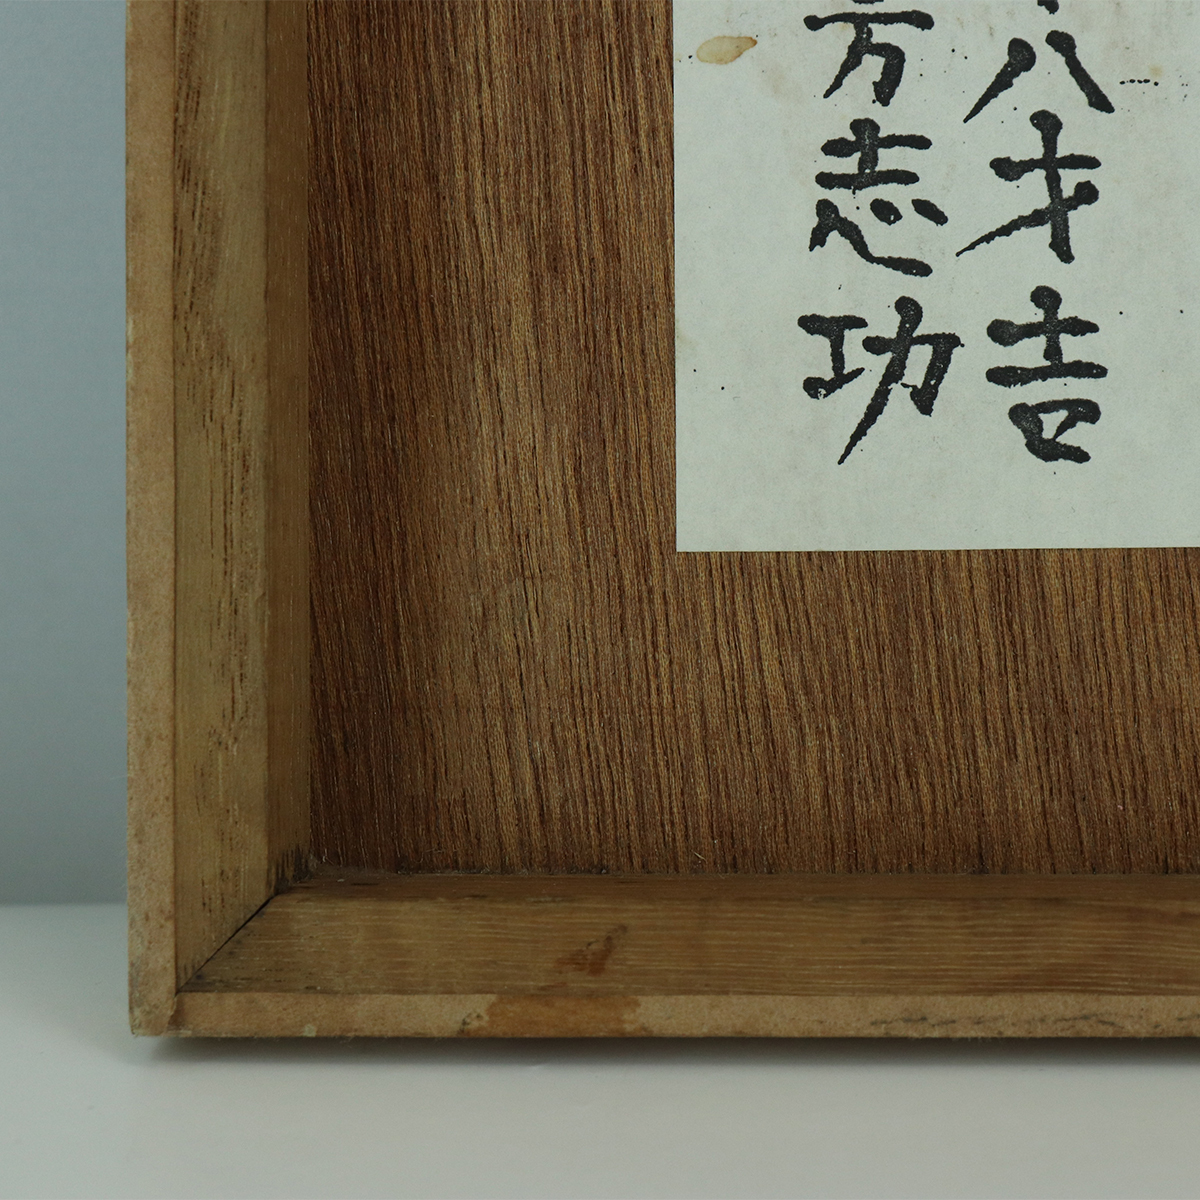 八才吉
方志功